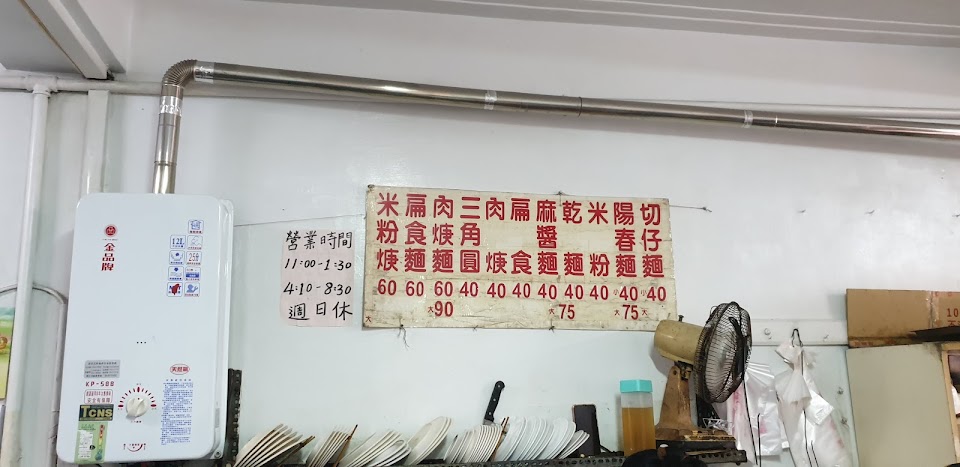 金品牌
12L
KP-508
TCNS
天然氣
營業時間
11:00-1:30
4:10-8:30
週日休
切仔麵
陽春麵
米粉
乾麵
麻醬麵
扁食
肉焿
三角圓
肉焿麵
扁食麵
米粉焿
60 60 60 40 40 40 40 40 40 小40 小40
大 大90 大75 大75 大
10